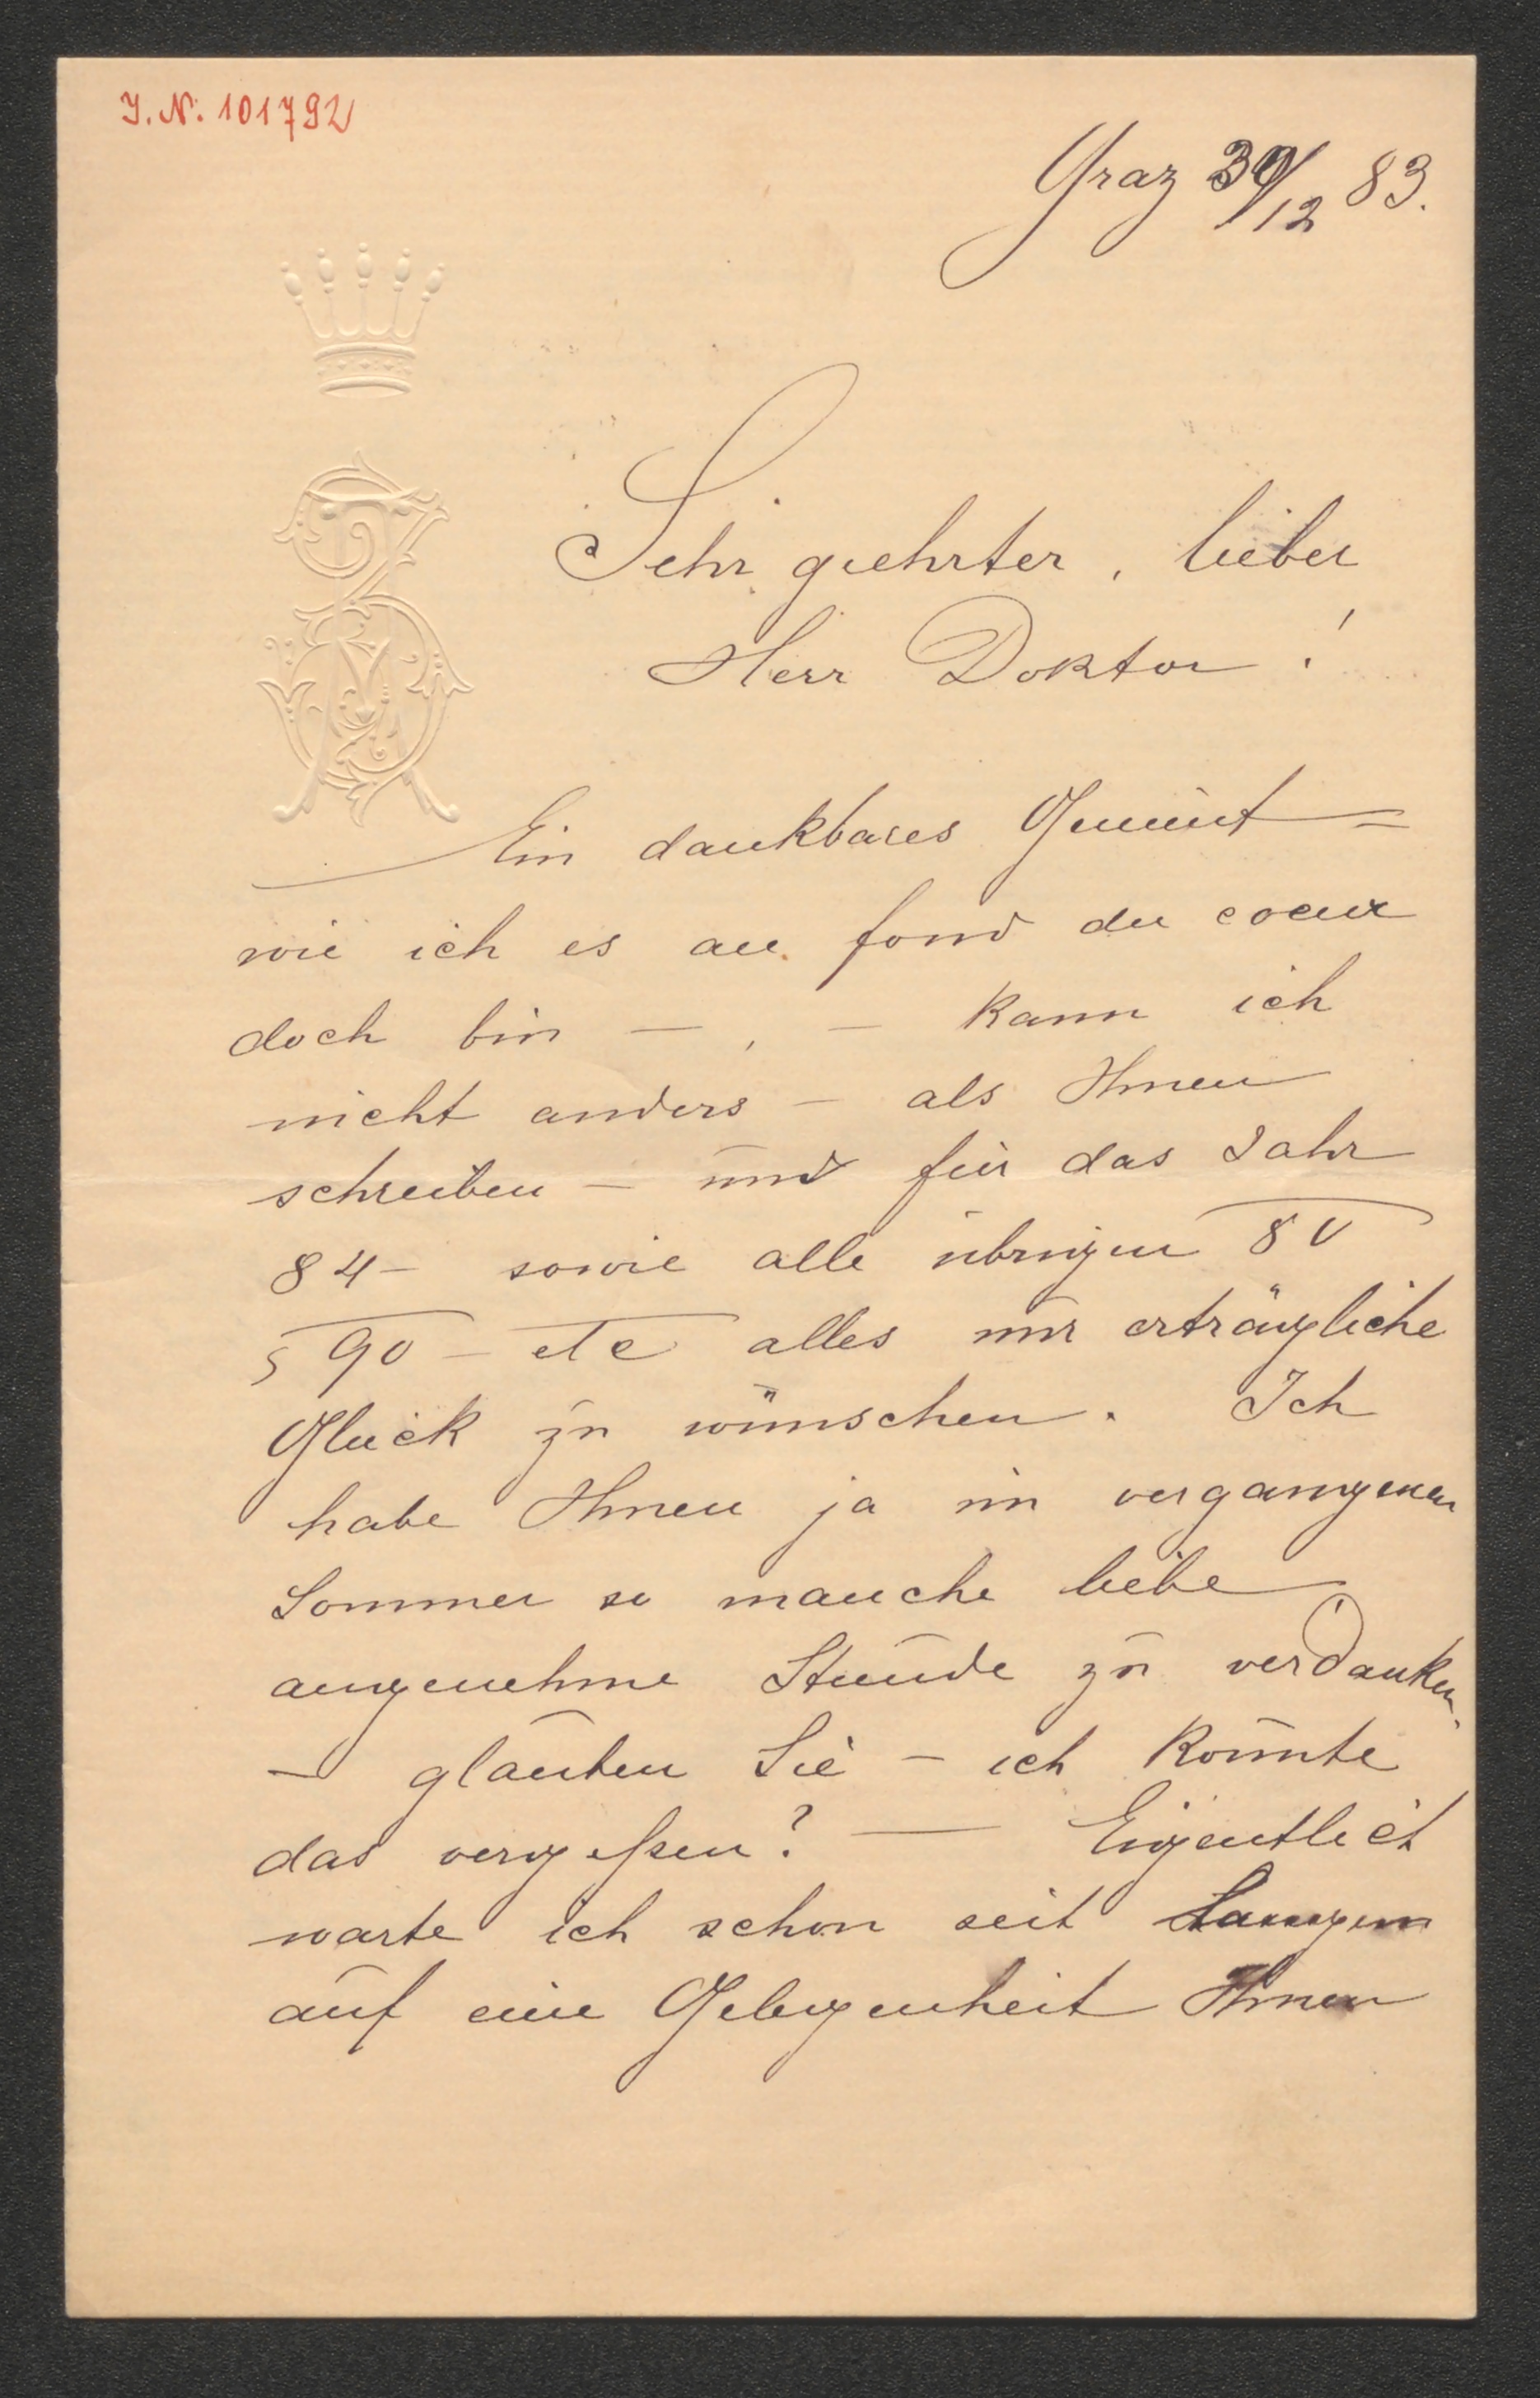 J. N. 101792
Graz 30/12 83.
Sehr geehrter, lieber
Herr Doktor!
Ein dankbares Gemüt =
wie ich es au fond du coeur
doch bin — , — kann ich
nicht anders — als Ihnen
schreiben — und für das Jahr
84 — sowie alle übrigen 80
90 — etc alles nur erträgliche
Glück zu wünschen. Ich
habe Ihnen ja im vergangenen
Sommer so manche liebe
angenehme Stunde zu verdanken.
— glauben Sie — ich könnte
das vergeßen? — Eigentlich
warte ich schon seit Langem
auf eine Gelegenheit Ihnen